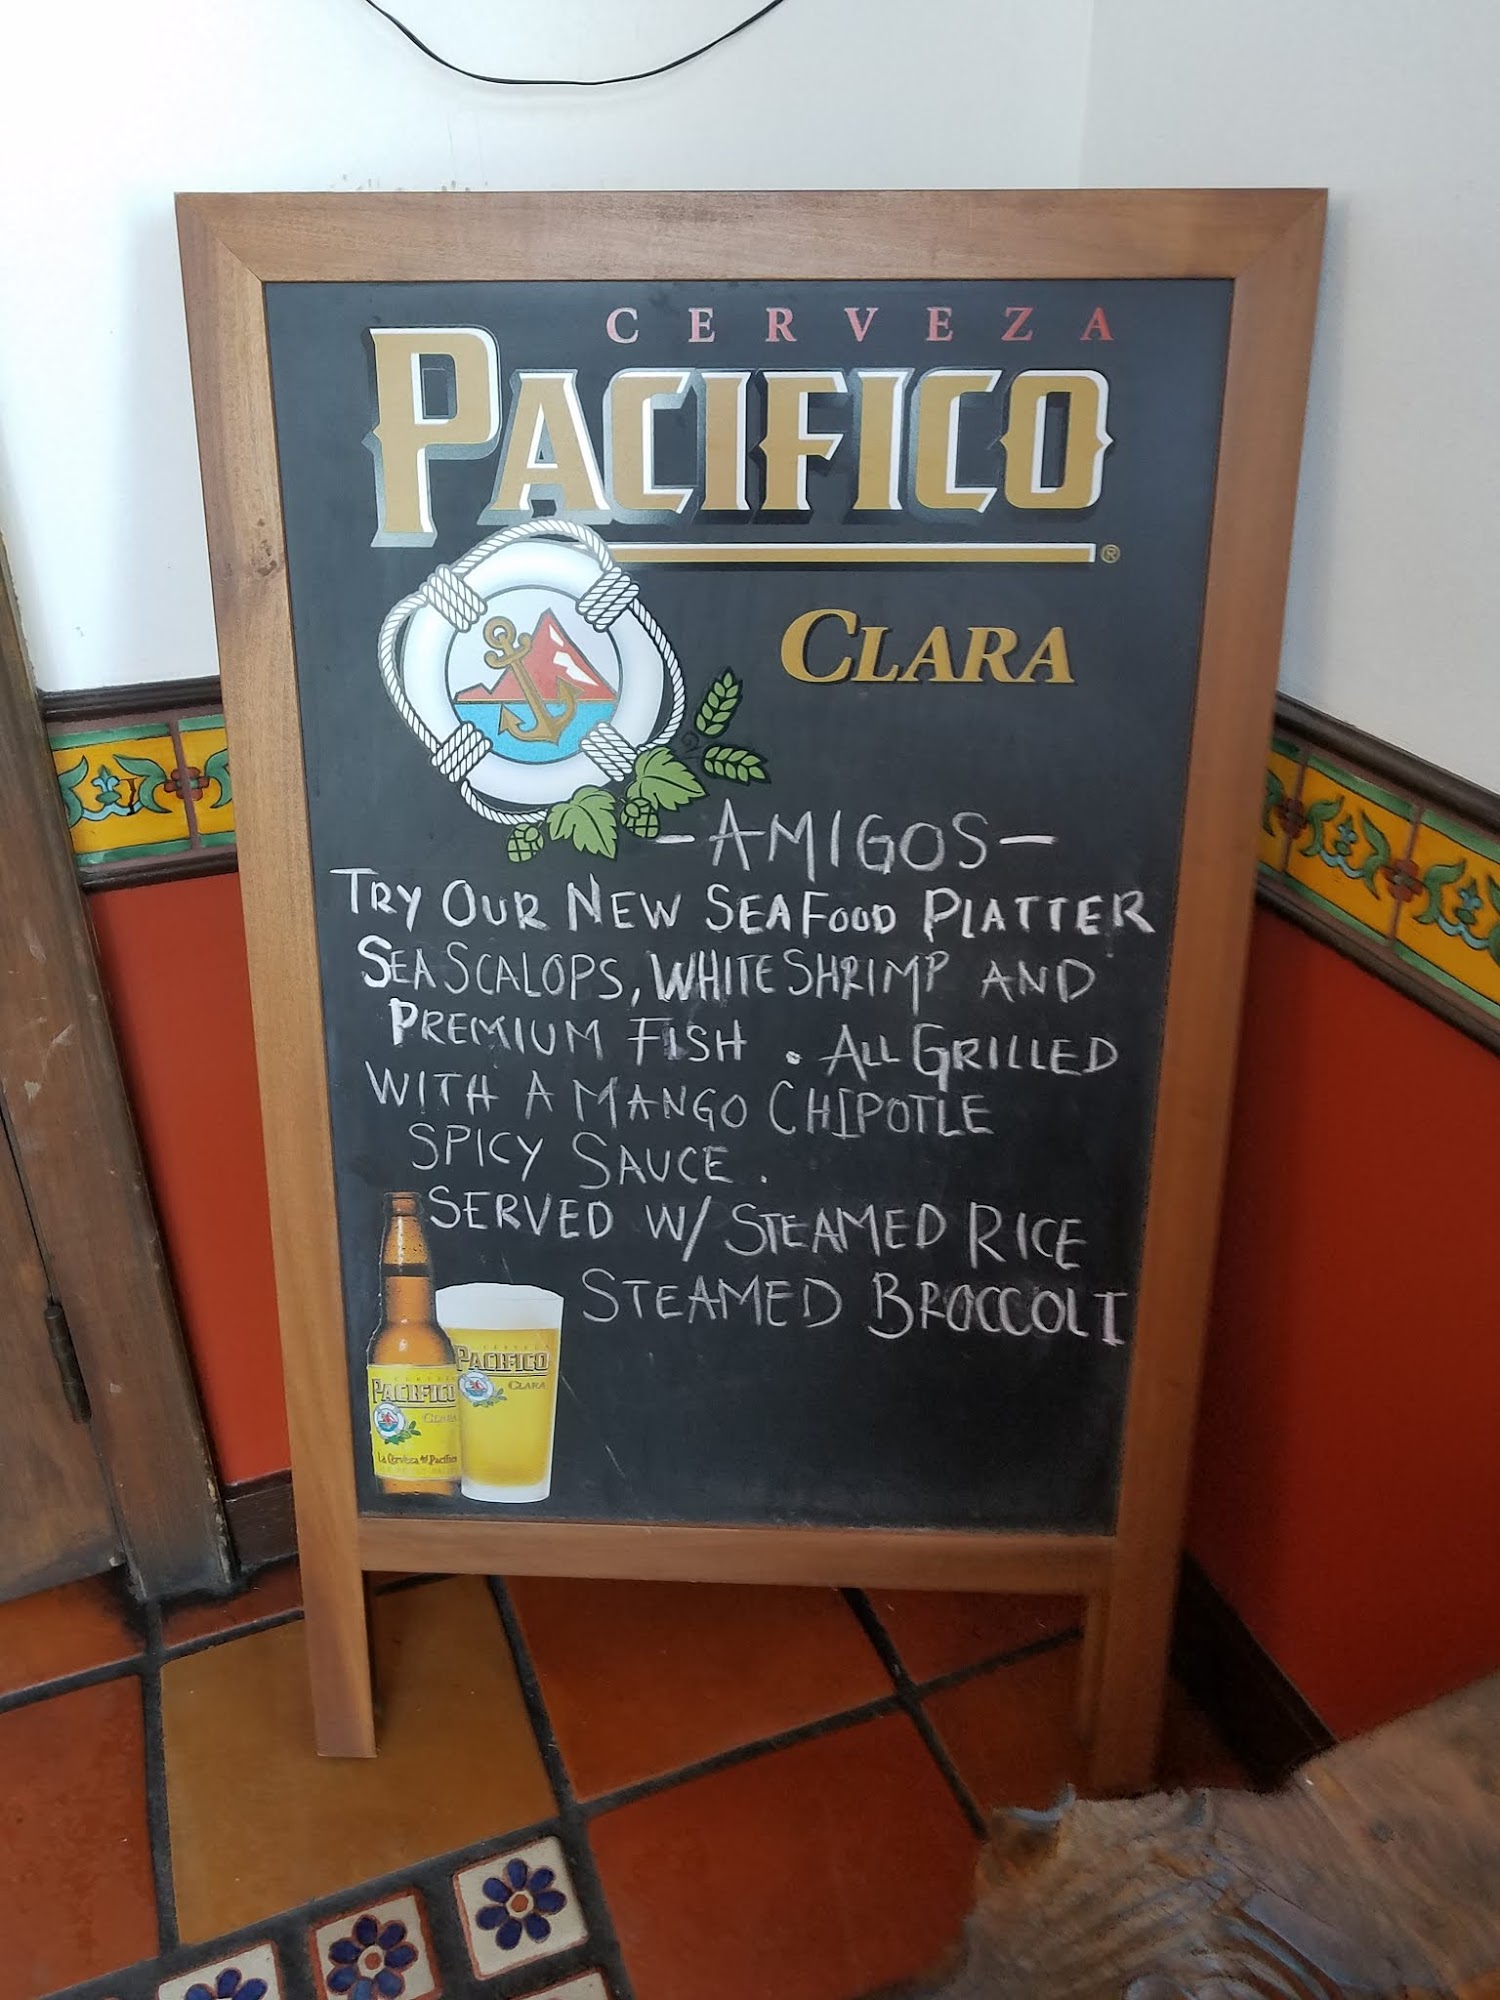 CERVEZA
PACIFICO
®
CLARA
-AMIGOS-
TRY OUR NEW SEAFOOD PLATTER
SEA SCALOPS, WHITE SHRIMP AND
PREMIUM FISH . ALL GRILLED
WITH A MANGO CHIPOTLE
SPICY SAUCE .
SERVED W/ STEAMED RICE
STEAMED BROCCOLI
CERVEZA
PACIFICO
CLARA
PACIFICO
CLARA
La Cerveza del Pacífico